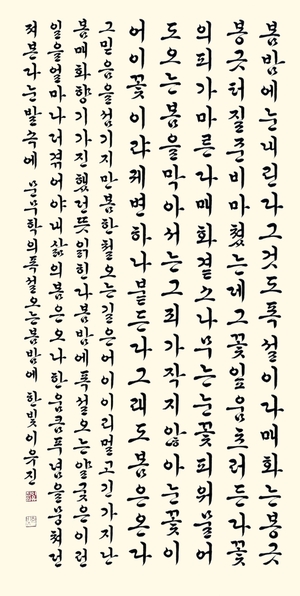 봄밤에눈내린다그것도폭설이라매화는봉긋
봉긋터질준비마쳤는데그꽃잎움츠러든다꽃
의피가마른다매화곁스나무는눈꽃피워물어
도오는봄을막아서는그죄가작지않아눈꽃이
어이꽃이랴궤변하나붙든다그래도봄은온다
그믿음을섬기지만봄한철오는길은어이이리멀고긴가지난
봄매화향기가진했던뜻읽힌다봄밤에폭설오는얄궂은이런
일을얼마나더겪어야내삶의봄은오나한움큼푸념을뭉쳐던
져본다눈발속에 문무학의폭설오는봄밤에 한빛이유진